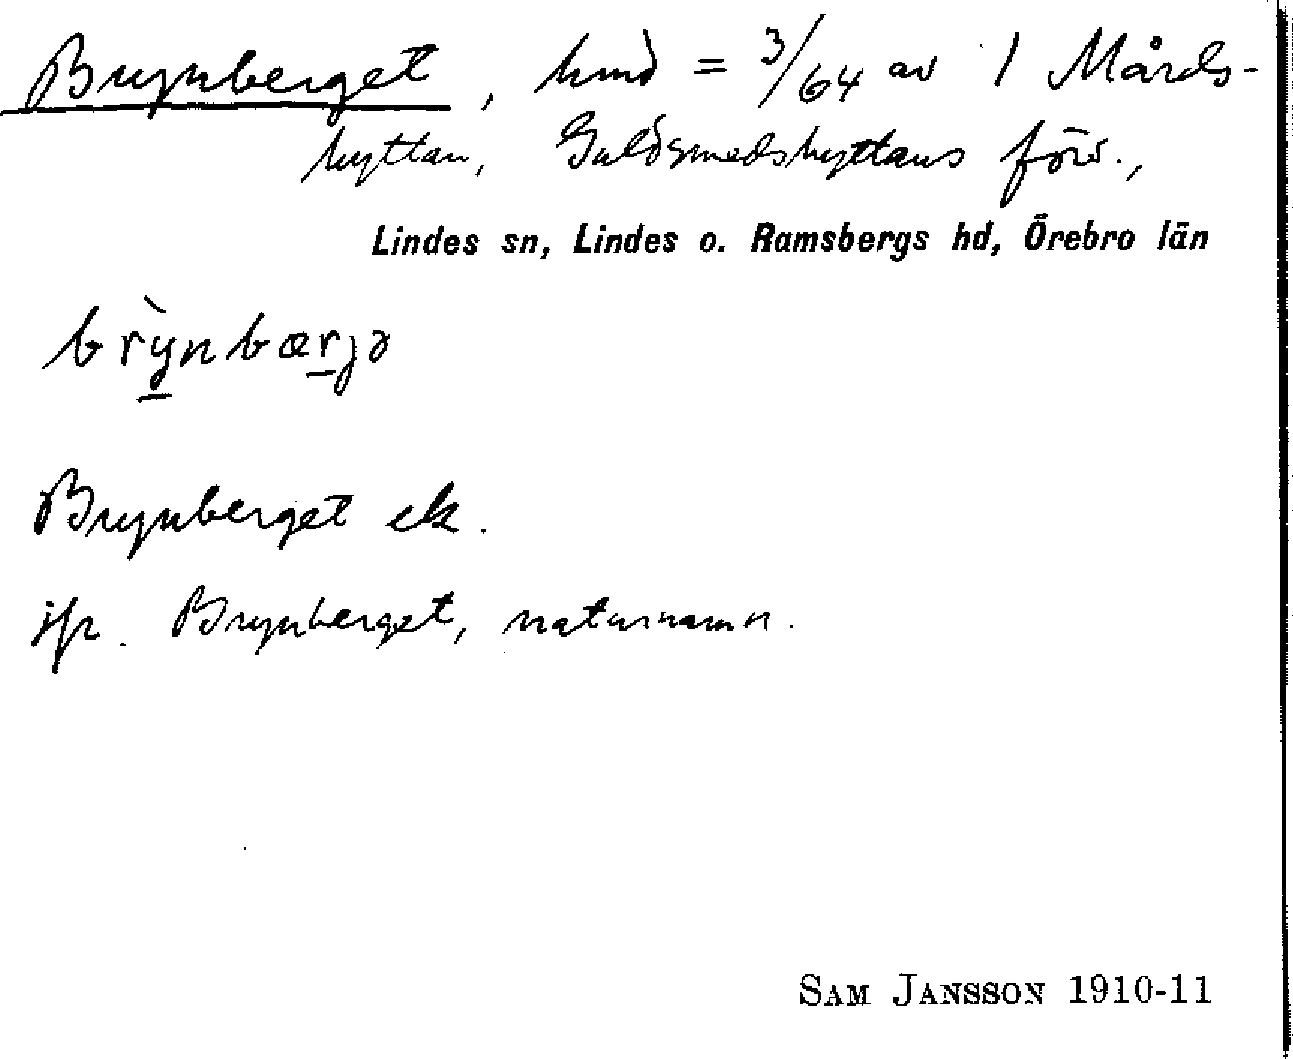 Brynberget, hmd = 3/64 av 1 Mårds-
hyttan, Guldsmedshyttans förs.,
Lindes sn, Lindes o. Ramsbergs hd, Örebro län
brỳnbærjə
Brynberget ek.
jfr. Brynberget, naturnamn.
SAM JANSSON 1910-11